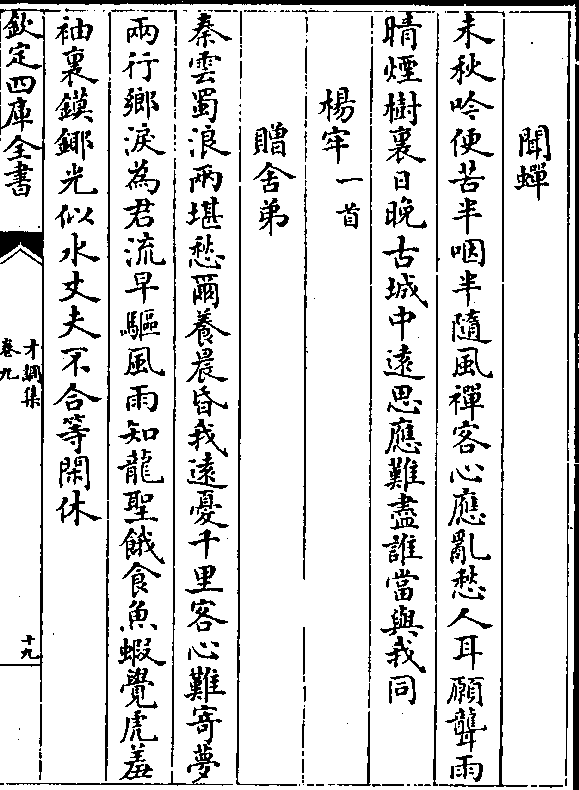 聞蟬
未秋吟便苦半咽半隨風禪客心應亂愁人耳願聾雨
晴煙樹裏日晚古城中遠思應難盡誰當與我同
楊牢一首
贈舍弟
秦雲蜀浪兩堪愁爾養晨昏我遠憂千里客心難寄夢
兩行鄉淚為君流早驅風雨知龍聖餓食魚蝦覺虎羞
袖裏鏌鎁光似水丈夫不合等閑休
欽定四庫全書
才調集
卷九
十九